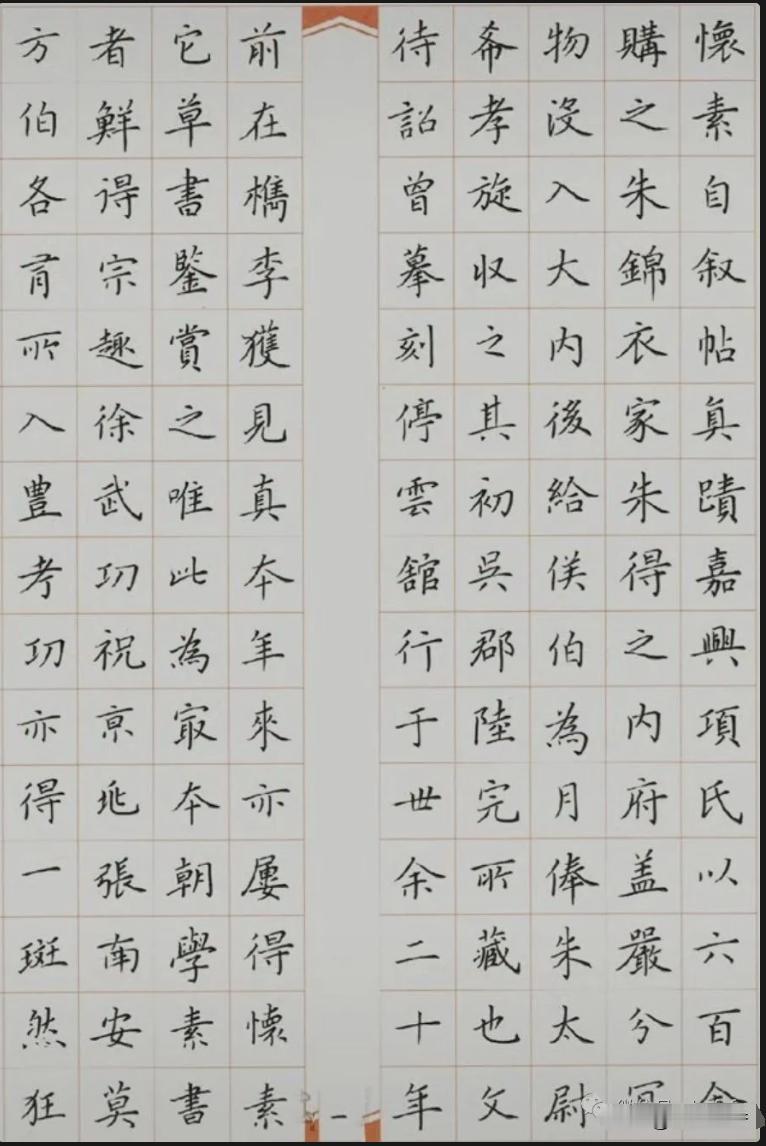 懷素自叙帖真蹟嘉興項氏以六百金
購之朱錦衣家朱得之內府盖嚴分冝
物沒入大內後給侯伯為月俸朱太尉
希孝旋收之其初吳郡陸完所藏也文
待詔曾摹刻停雲舘行于世余二十年
一
前在檇李獲見真本年來亦屢得懷素
它草書鑒賞之唯此為最本朝學素書
者鮮得宗趣徐武功祝京兆張南安莫
方伯各有所入豊考功亦得一斑然狂